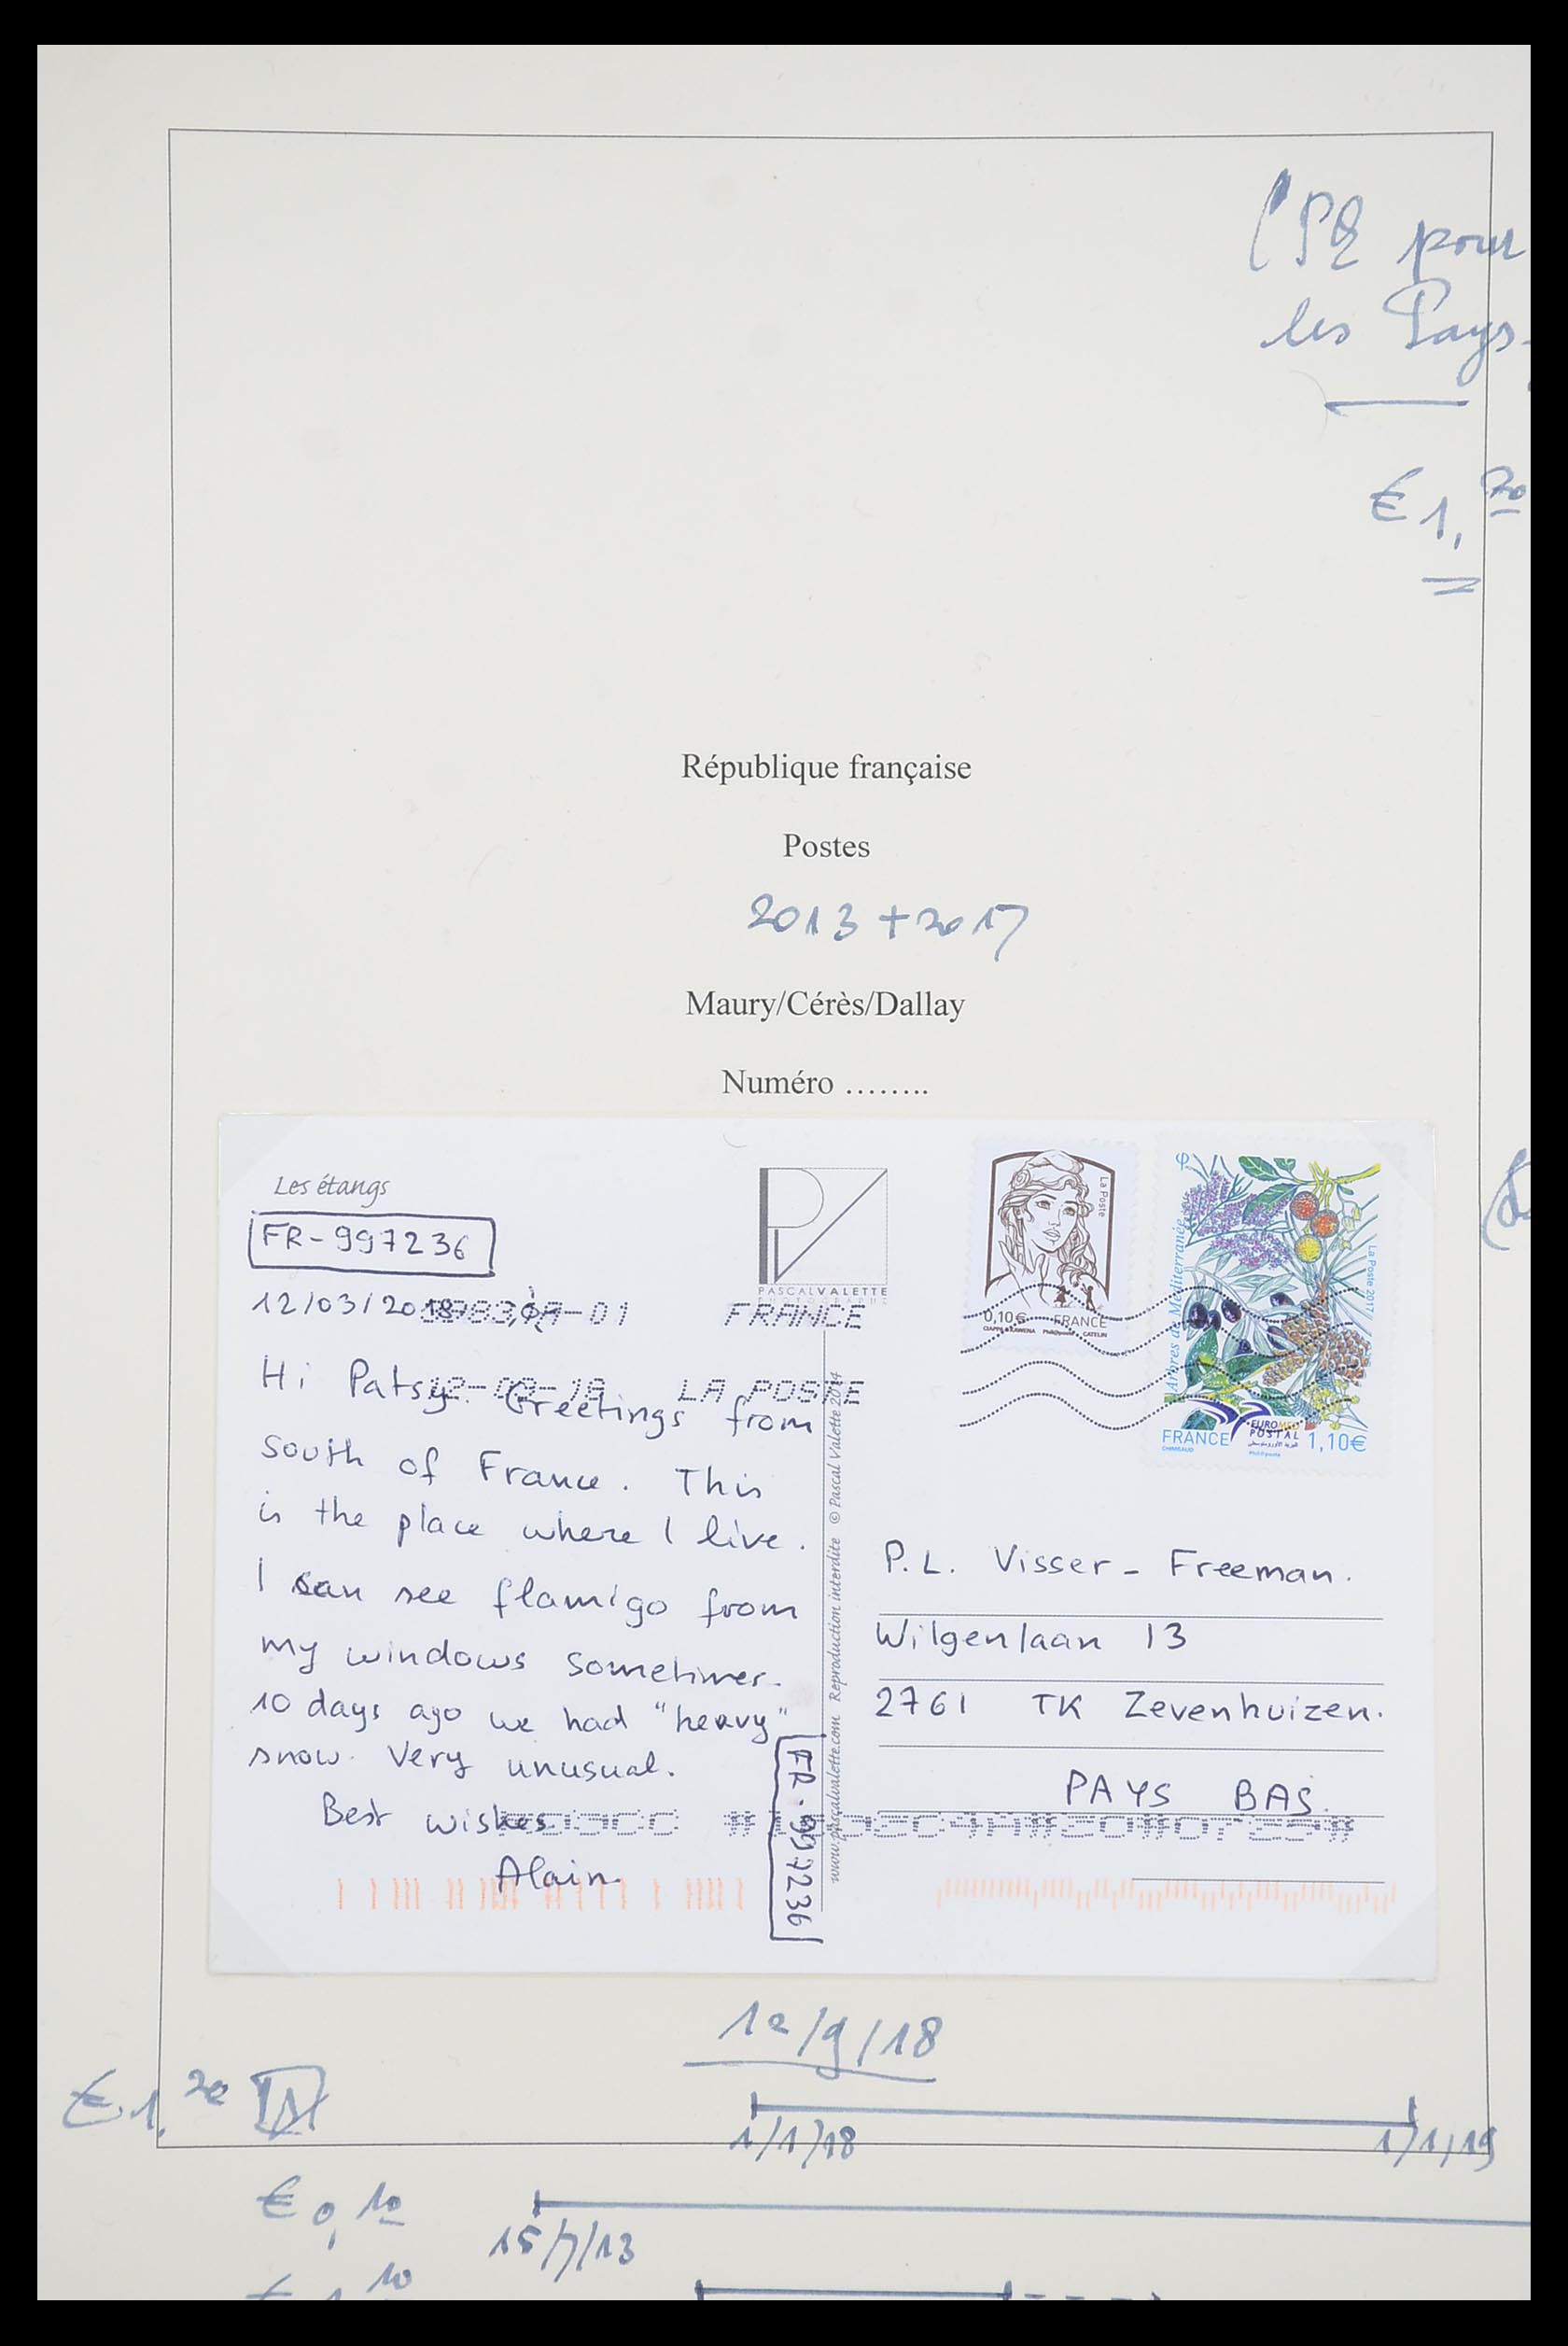 CPE pour
les Pays-
€ 1,20
République française
Postes
2013 + 2017
Maury/Cérès/Dallay
Numéro ........
Les étangs
FR-997236
12/03/2018
-01 FRANCE
LA POSTE
PASCALVALETTE
PHOTOGRAPHE
La Poste
0,10€ FRANCE
CIAPPA & KAWENA Phil@poste CATELIN
φ
Arbres de Méditerranée
La Poste 2017
EUROMED
POSTAL
FRANCE 1,10€
Phil@poste
Hi Patsy. Greetings from
south of France. This
is the place where I live.
I can see flamigo from
my windows sometimes.
10 days ago we had "heavy"
snow. Very unusual.
Best wishes
Alain.
FR-997236
www.pascalvalette.com Reproduction interdite © Pascal Valette 2014
P.L. Visser - Freeman.
Wilgenlaan 13
2761 TK Zevenhuizen.
PAYS BAS.
12/9/18
€ 1,20
1/1/18 1/1/19
€ 0,10
15/7/13
€ 1,10